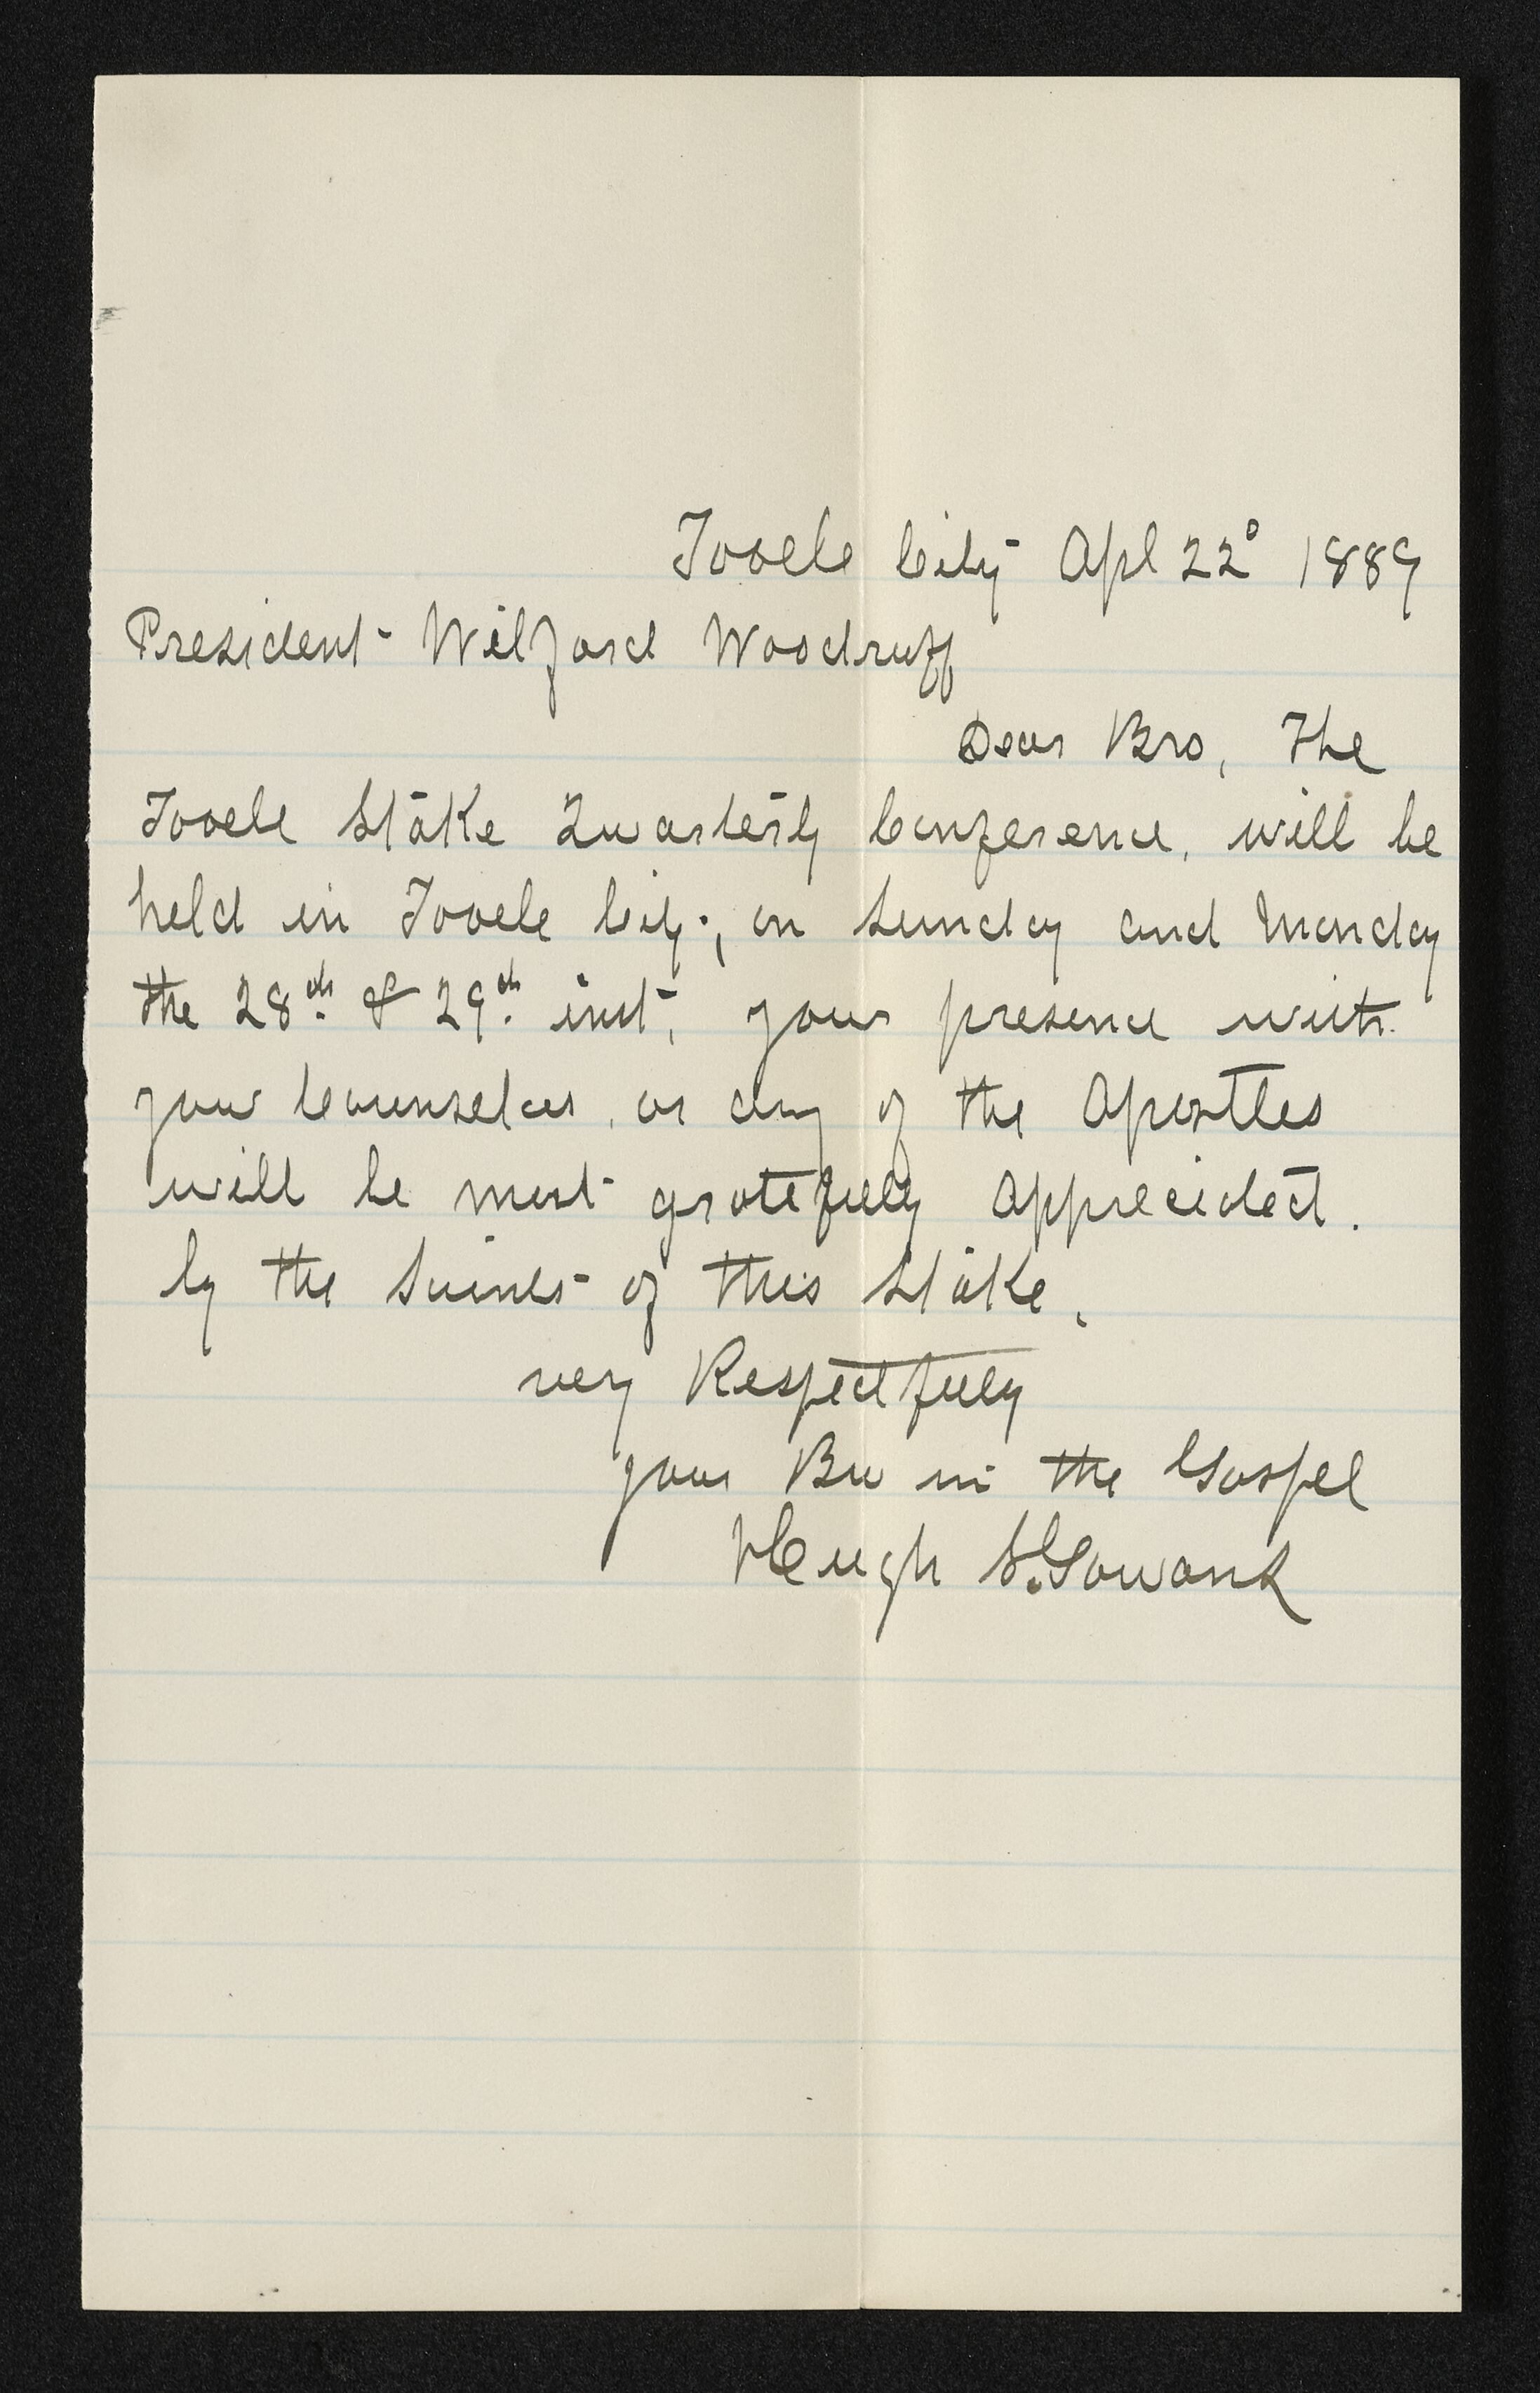 Tooele City Apl 22° 1889
President Wilford Woodruff
Dear Bro, The
Tooele Stake Quarterly Conference, will be
held in Tooele City, on Sunday and Monday
the 28th. & 29th. inst, your presence with
your Counselors, or any of the Apostles
will be most gratefully appreciated.
by the Saints of this Stake,
very Respectfully
your Bro in the Gospel
Hugh S. Gowans